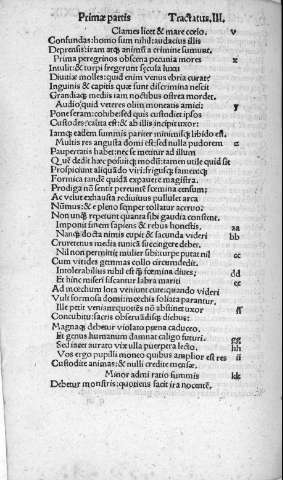 Primæ partis Tractatus. III.
Clames licet & mare cœlo. v
Confundas: homo sum nihil: audacius illis
Deprensis: iram atq3 animos a crimine sumunt.
Prima peregrinos obscena pecunia mores x
Intulit: & turpi fregerunt secula luxu
Diuitiæ molles: quid enim venus ebria curat?
Inguinis & capitis que sunt discrimina nescit
Grandia q3 mediis iam noctibus ostrea mordet.
Audio quid veteres olim moneatis amici: y
Pone seram: cohibe sed quis custodiet ipsos
Custodes: cauta est: & ab illis incipit uxor:
Iamq3 eadem summis pariter minimisq3 libido est.
Multis res angusta domi est: sed nulla pudorem z
Paupertatis habet: nec se metitur ad illum
Quē dedit hæc posuitq3 modū: tamen utile quid sit
Prospiciunt aliquādo viri: frigusq3 famemq3
Formica tandē quidā expauere magistra.
Prodiga nō sentit pereuntē fœmina censum:
Ac velut exhausta rediuiuus pullulet arca
Nūmus: & e pleno semper tollatur aceruo:
Non unq3 reputant quanta sibi gaudia constent.
Imponit finem sapiens & rebus honestis, aa
Nanq3 docta nimis cupit & facunda videri bb
Crure tenus media tunicā succingere debet.
Nil non permittit mulier sibi: turpe putat nil cc
Cum virides gemmas collo circumdedit.
Intolerabilius nihil est q̄ fœmina diues; dd
Et hinc miseri viscantur labra mariti ee
Ad mœchum lota veniunt cute: quando videri
Vult formosa domi: mœchis foliata parantur,
Ille petit veniam quoties nō abstinet uxor ff
Concubitu: sacris obseruādisq3 diebus:
Magnaq3 debetur violato pœna caduceo.
Et genus humanum damnat caligo futuri. gg
Sed iacet aurato vix ulla puerpera lecto. hh
Vos ergo pupilli moneo quibus amplior est res ii
Custodite animas: & nulli credite mensæ.
Minor admi ratio summis kk
Debetur monstris: quotiens facit ira nocentē.